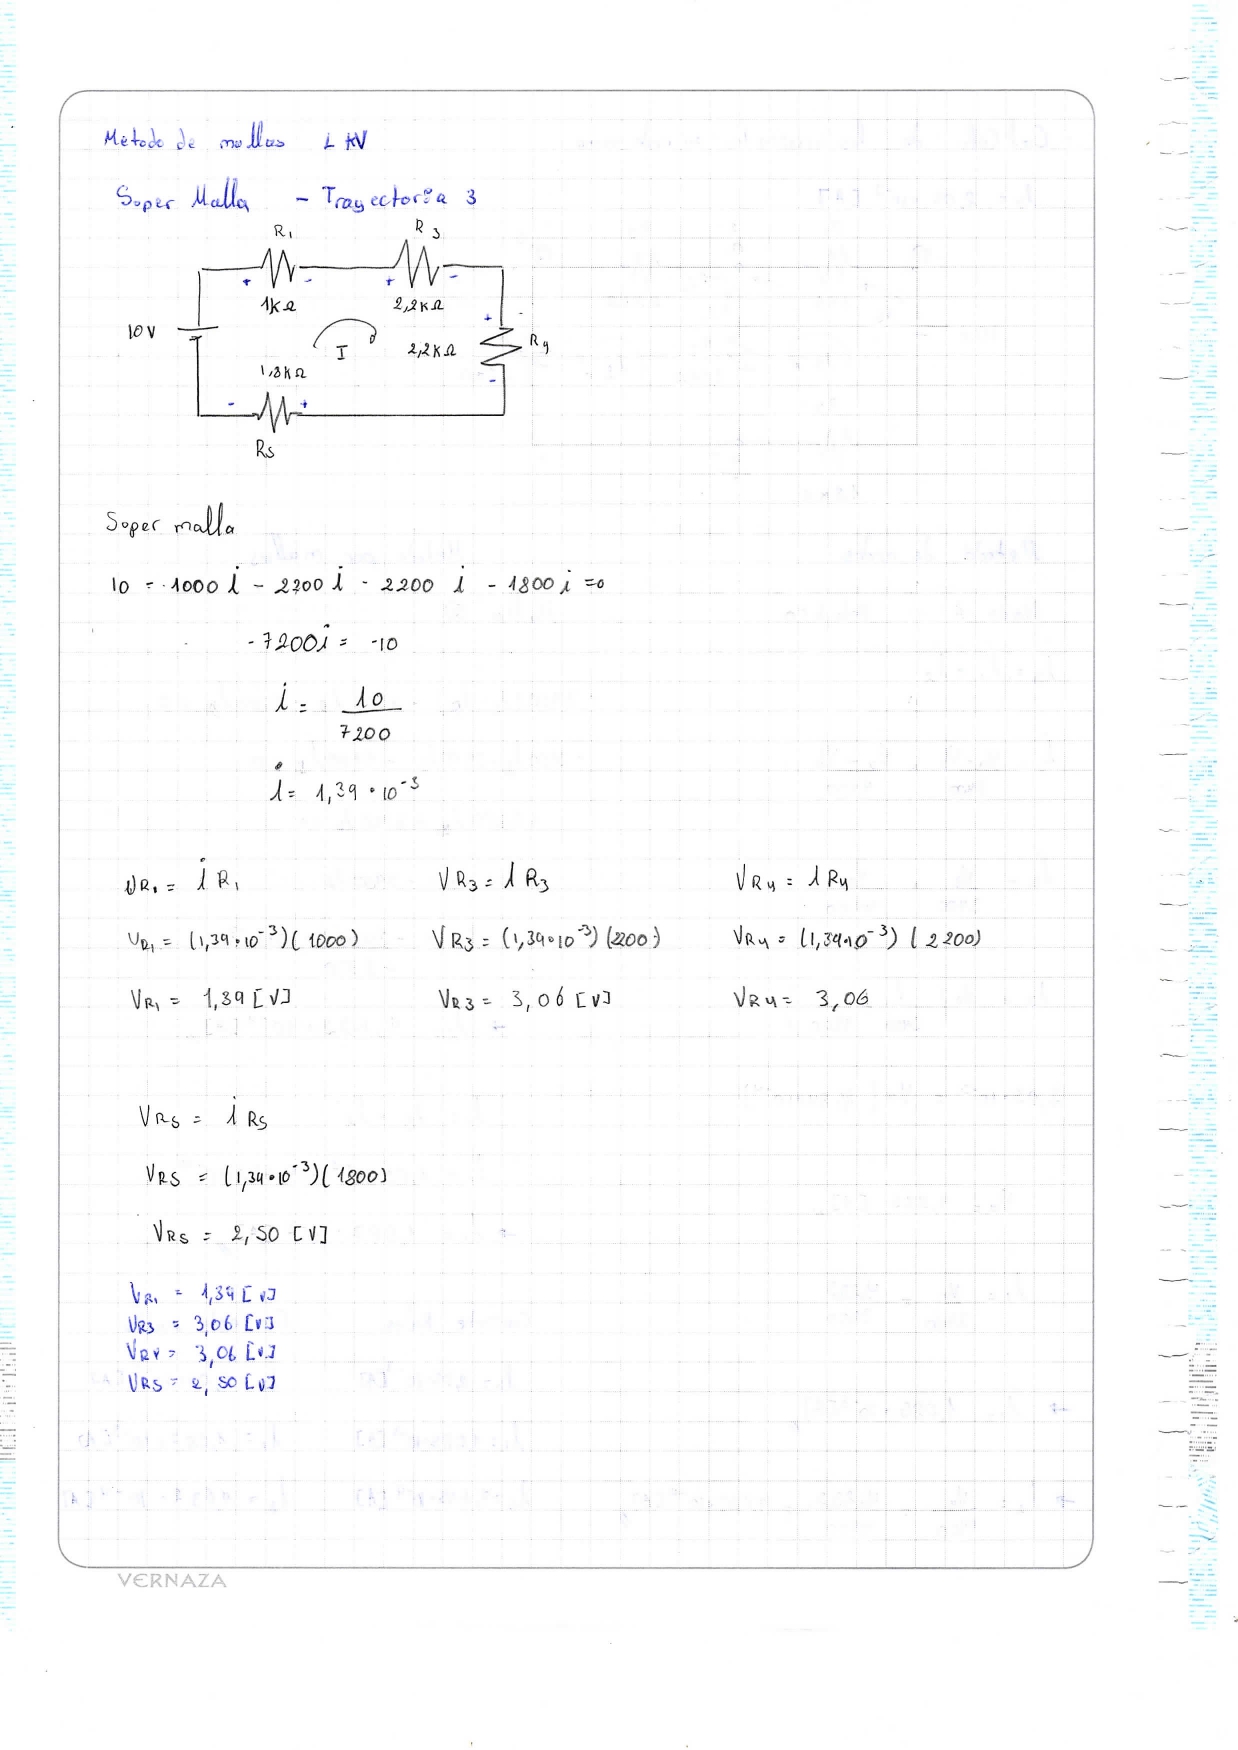 Método de mallas LKV
Super Malla - Trayectoria 3
R1 R3
+ - + -
1KΩ 2,2KΩ
+
10V I 2,2KΩ R9
1,8KΩ -
- +
R5
Super malla
10 = -1000 i - 2200 i - 2200 i - 1800 i =0
-7200i = -10
i = 10
7200
i = 1,39 • 10⁻³
VR1 = i R1 VR3 = i R3 VR4 = i R4
VR1 = (1,39•10⁻³)(1000) VR3 = (1,39•10⁻³)(2200) VR4 = (1,39•10⁻³)(2200)
VR1 = 1,39 [V] VR3 = 3,06 [V] VR4 = 3,06
VR5 = i R5
VR5 = (1,39•10⁻³)(1800)
VR5 = 2,50 [V]
VR1 = 1,39 [V]
VR3 = 3,06 [V]
VR4 = 3,06 [V]
VR5 = 2,50 [V]
VERNAZA